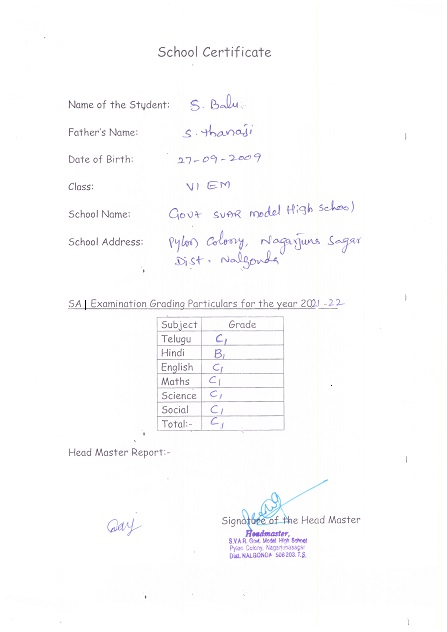 School Certificate
Name of the Student: S. Balu.
Father's Name: S. thanaji
Date of Birth: 27-09-2009
Class: VI EM
School Name: Govt SVAR model High School
School Address: Pylon Colony, Nagarjuna Sagar
Dist. Nalgonda
SA I Examination Grading Particulars for the year 2021-22
Subject Grade
Telugu C1
Hindi B1
English C1
Maths C1
Science C1
Social C1
Total:- C1
Head Master Report:-
Signature of the Head Master
Headmaster,
S.V.A.R. Govt. Model High School
Pylon Colony, Nagarjunasagar
Dist. NALGONDA 508 203. T.S.